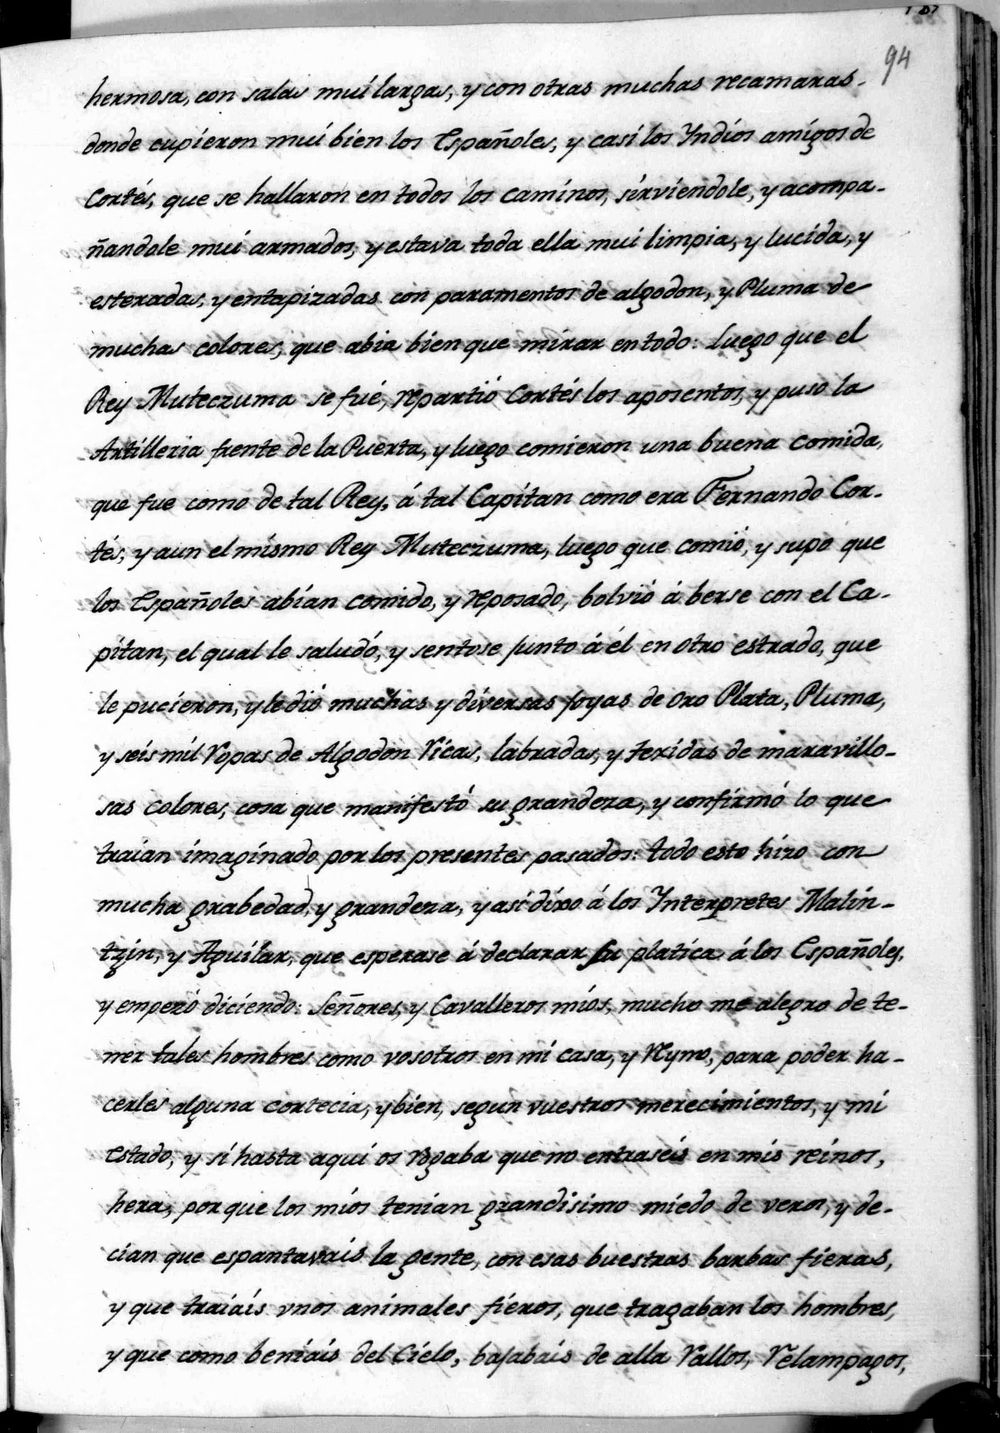 94
hermosa, con salas mui largas, y con otras muchas recamaras
donde cupieron mui bien los Españoles, y casi los Yndios amigos de
Cortés, que se hallaron en todos los caminos, sirviendole, y acompa-
ñandole mui armados, y estava toda ella mui limpia, y lucida, y
esteradas, y entapizadas con paramentos de algodon, y Pluma de
muchas colores, que abia bien que mirar en todo: Luego que el
Rey Muteczuma se fué, repartió Cortés los aposentos, y puso la
Artilleria frente de la Puerta, y luego comieron una buena comida,
que fue como de tal Rey, á tal Capitan como era Fernando Cor-
tés; y aun el mismo Rey Muteczuma, luego que comió, y supo que
los Españoles abian comido, y reposado, bolvió á berse con el Ca-
pitan, el qual le saludó, y sentose junto á él en otro estrado, que
le pucieron, y le dió muchas y diversas joyas de oro Plata, Pluma,
y seis mil ropas de Algodon ricas, labradas, y texidas de maravillo-
sas colores, cosa que manifestó su grandeza, y confirmó lo que
traian imaginado por los presentes pasados: todo esto hizo con
mucha grabedad, y grandeza, y asi dixo á los Interpretes Malin-
tzin, y Aguilar, que esperase á declarar su platica á los Españoles,
y empezó diciendo: Señores, y Cavalleros mios, mucho me alegro de te-
ner tales hombres como vosotros en mi casa, y Reyno, para poder ha-
cerles alguna cortecia, y bien, segun vuestros merecimientos, y mi
estado, y si hasta aqui os rogaba que no entraséis en mis reinos,
hera, por que los mios tenian grandisimo miedo de veros, y de-
cian que espantavais la gente, con esas buestras barbas fieras,
y que traiais unos animales fieros, que tragaban los hombres,
y que como beniais del Cielo, bajabais de alla rallos, relampagos,